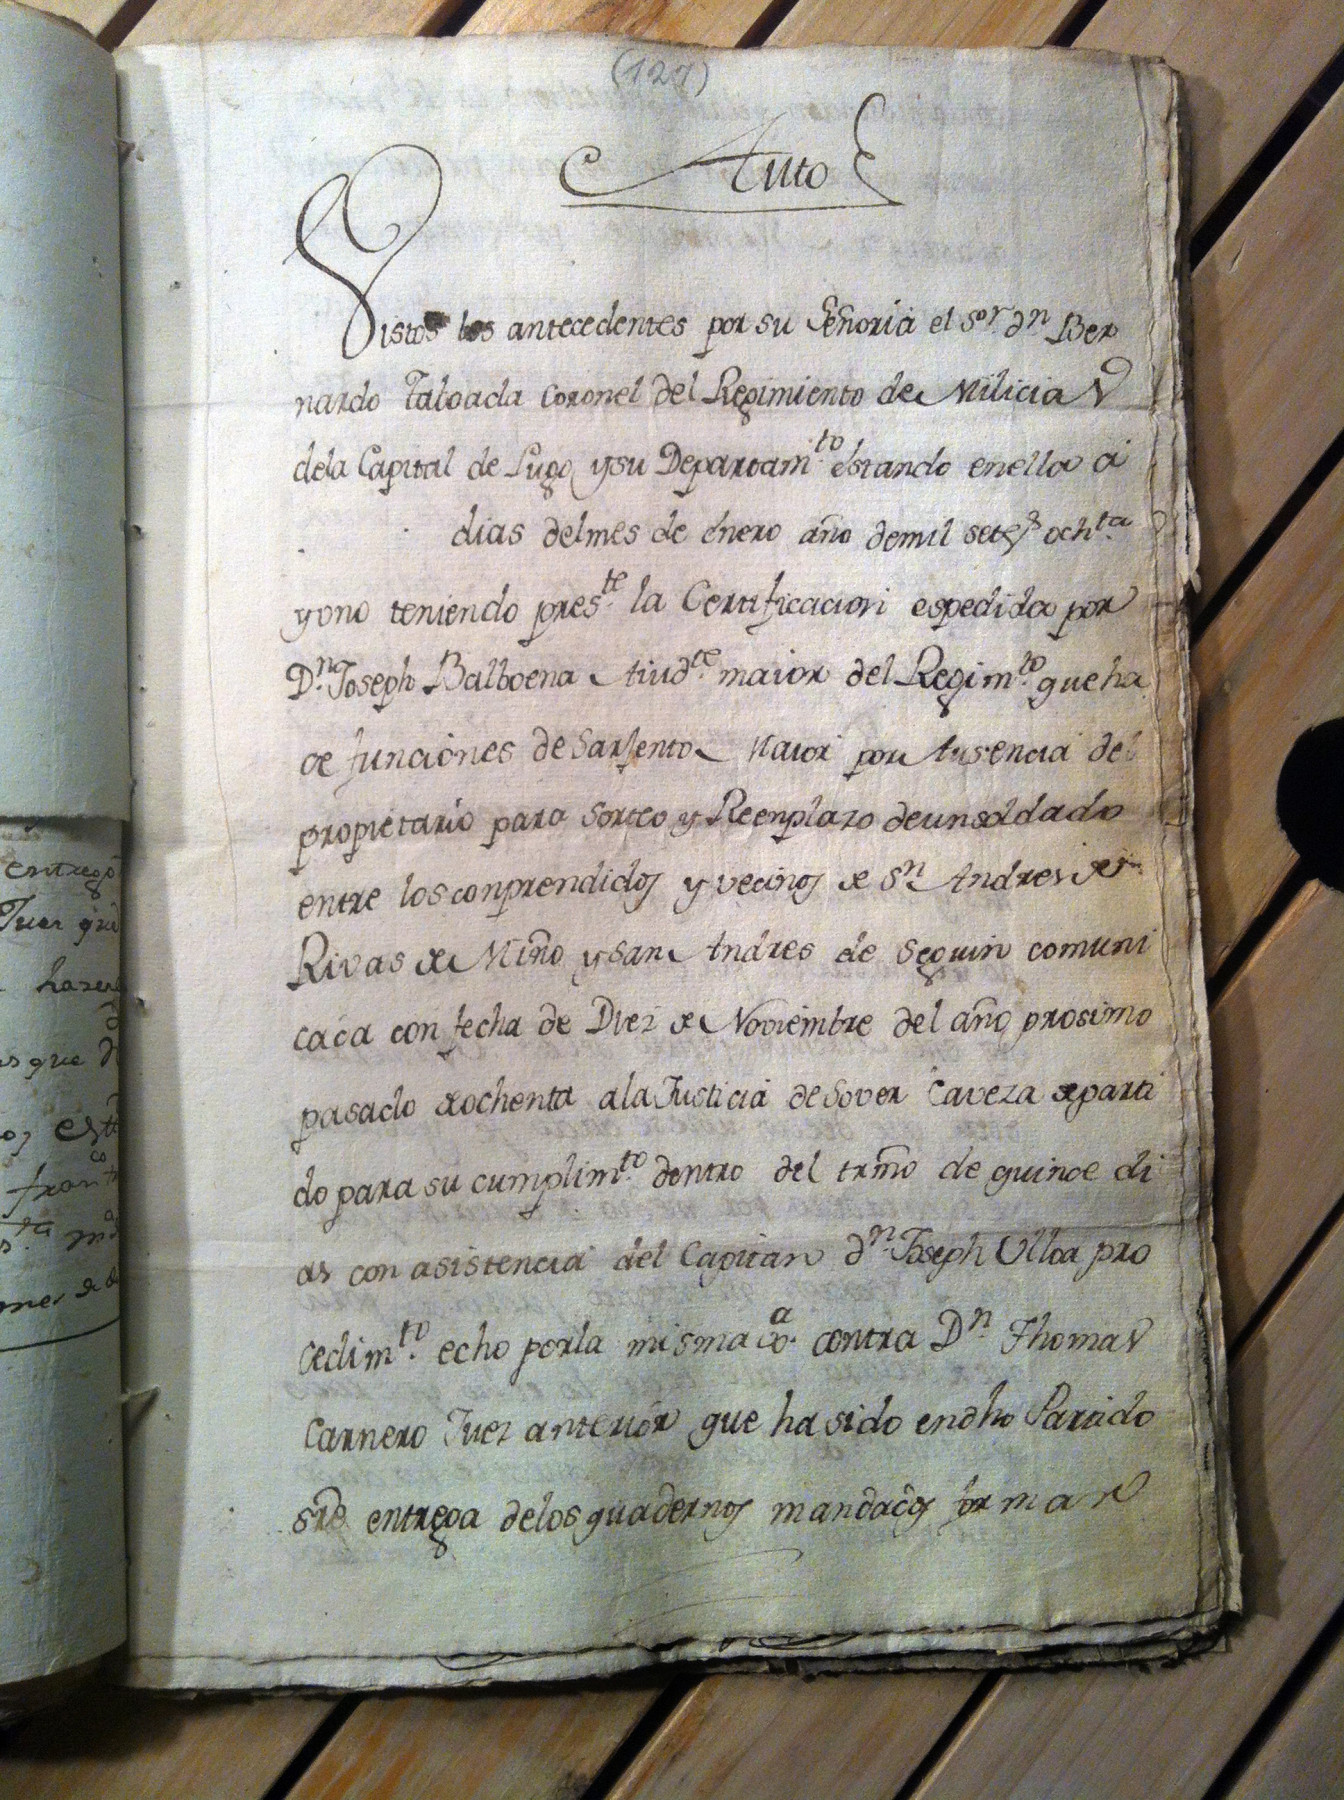 (127)
Auto
Vistos los antecedentes por su Señoria el S.or D.n Ber
nardo Taboada Coronel del Regimiento de Milicias
dela Capital de Lugo, y su Departam.to estando enella á
dias delmes de énero año demil setes ocht.ta
y uno teniendo pres.te la Certificacion espedida por
D.n Joseph Balboena Aiud.te maior del Regim.to que ha
ce funciones de Sarjento Maior por Ausencia del
propietario para Sorteo y Reenplazo deunsoldado
entre los conprendidos y vecinos de S.n Andres de
Rivas de Miño y san Andres de Seguin comuni
cada con fecha de Diez de Noviembre del año prosimo
pasado de ochenta ala Justicia de Sover Caveza departi
do para su cumplim.to dentro del trmo de quince di
as con asistencia del Capitan d.n Joseph Ulloa pro
cedim.to echo porla misma contra D.n Thomas
Carnero Juez anteriór que ha sido endho Partido
sre entrega delos quadernos mandados formar
entregó
Juez que
hazer
que